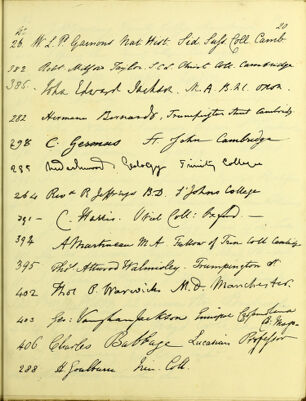 20
26 W. L. P. Garnons Nat Hist. Sid. Suss Coll Camb.
382 Robt Taylor Christ Coll. Cambridge
386 John Edward Jackson. M. A. B.N.C. Oxon.
282 Hermann Bernard, Trumpington Street Cambridge
298 C. St John Cambridge
Geology Trinity College
264 Revd R Jeffreys B.D. St Johns College
391 — C. Harris. Oriel Coll: Oxford. —
394 A Martineau M A Fellow of Trin Coll Cambridge
395 Thos Attwood Walmisley. Trumpington St
402 Thos P Warwick M.D. Manchester.
403 Geo: Vaughan Jackson
406 Charles Babbage Lucasian Professor
288 H Goulburn Trin. Coll.